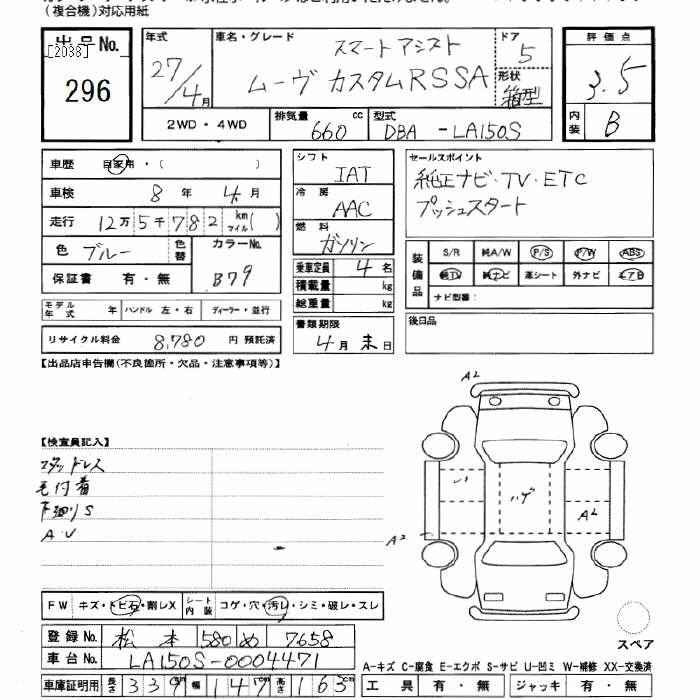 (複合機)対応用紙
出品No.
[2038]
296
年式 27/4月
車名・グレード スマートアシスト
ムーヴ カスタムRSSA
ドア 5
形状 箱型
2WD・4WD
排気量 660 cc
型式 DBA - LA150S
評価点 3.5
内装 B
車歴 自家用・( )
車検 8年 4月
走行 12万5千782 km マイル( )
色 ブルー 色替 カラーNo. B79
保証書 有・無
モデル年式 年 ハンドル 左・右 ディーラー・並行
リサイクル料金 8,780 円 預託済
シフト IAT
冷房 AAC
燃料 ガソリン
乗車定員 4名
積載量 kg
総重量 kg
書類期限 4月末日
セールスポイント
純正ナビ・TV・ETC
プッシュスタート
装備品 S/R 純A/W P/S P/W ABS
純TV 純ナビ 革シート 外ナビ エアB
ナビ型番:
後日品
【出品店申告欄(不良箇所・欠品・注意事項等)】
【検査員記入】
毛付着
下廻りS
A・U
A2
ハゲ
A2
A2
FW キズ・トビ石・割レX シート内装 コゲ・穴・汚レ・シミ・破レ・スレ
登録No. 松本 580 め 7658
車台No. LA150S-0004471
車庫証明用 長さ 339cm 幅 147cm 高さ 163cm
スペア
A-キズ C-腐食 E-エクボ S-サビ U-凹ミ W-補修 XX-交換済
工具 有・無 ジャッキ 有・無